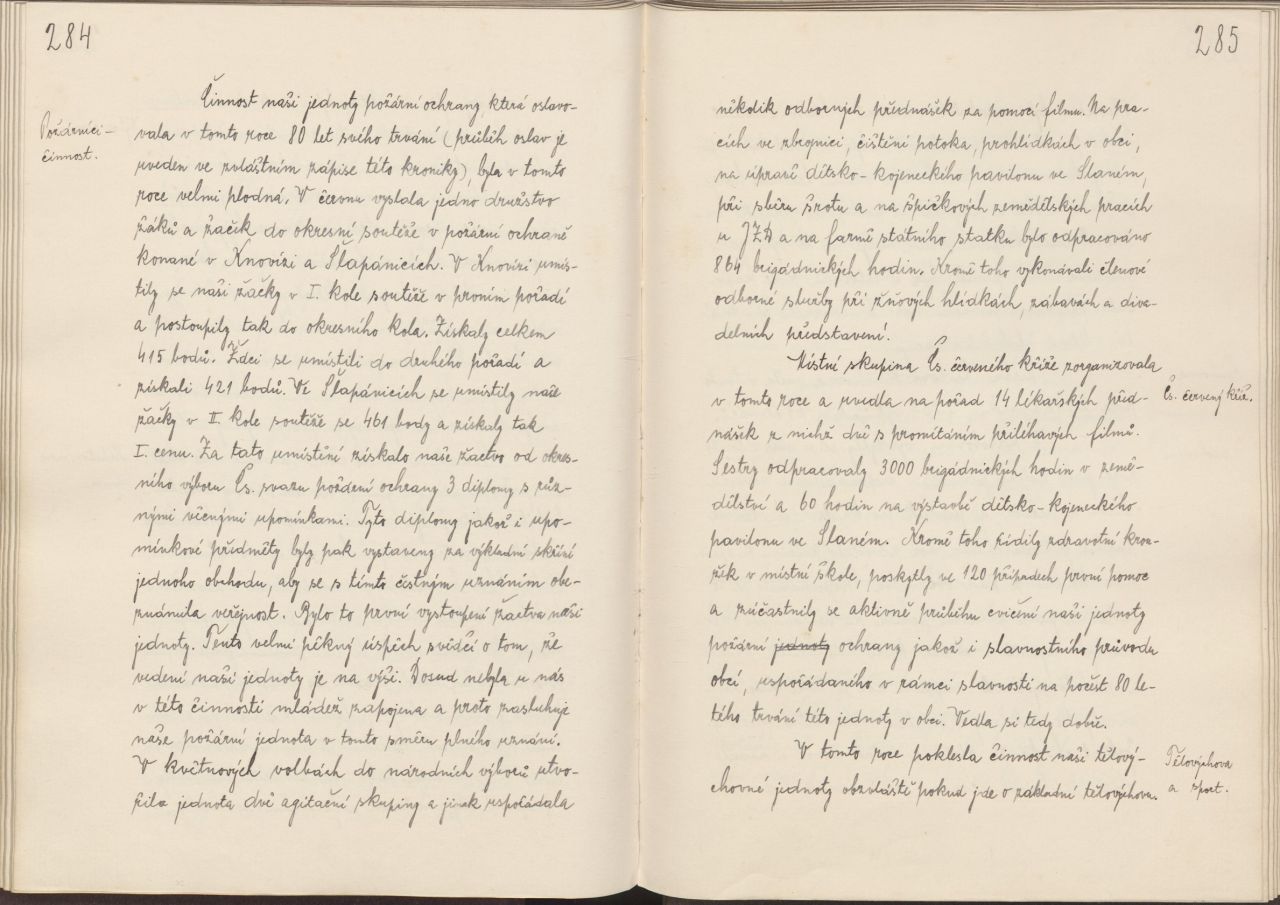 284
Požárnici-
činnost.
Činnost naší jednoty požární ochrany, která oslavo-
vala v tomto roce 80 let svého trvání (průběh oslav je
uveden ve zvláštním zápise této kroniky), byla v tomto
roce velmi plodná. V červnu vyslala jedno družstvo
žáků a žaček do okresní soutěže v požární ochraně
konané v Knovízi a Šlapánicích. V Knovízi umís-
tily se naši žačky v I. kole soutěže v prvním pořadí
a postoupily tak do okresního kola. Získaly celkem
415 bodů. Žáci se umístili do druhého pořadí a
získali 421 bodů. Ve Šlapánicích se umístily naše
žačky v II. kole soutěže se 461 body a získaly tak
I. cenu. Za tato umístění získalo naše žactvo od okres-
ního výboru Čs. svazu požární ochrany 3 diplomy s růz-
nými věcnými upomínkami. Tyto diplomy jakož i upo-
mínkové předměty byly pak vystaveny za výkladní skříní
jednoho obchodu, aby se s tímto čestným uznáním obe-
známila veřejnost. Bylo to první vystoupení žactva naší
jednoty. Tento velmi pěkný úspěch svědčí o tom, že
vedení naší jednoty je na výši. Dosud nebyla u nás
v této činnosti mládež zapojena a proto zasluhuje
naše požární jednota v tomto směru plného uznání.
V květnových volbách do národních výborů utvo-
řila jednota dvě agitační skupiny a jinak uspořádala
285
několik odborných přednášek za pomoci filmu. Na pra-
cích ve zbrojnici, čištění potoka, prohlídkách v obci,
na úpravě dětsko-kojeneckého pavilonu ve Slaném,
při sběru šrotu a na špičkových zemědělských pracích
u JZD a na farmě státního statku bylo odpracováno
864 brigádnických hodin. Kromě toho vykonávali členové
odborné služby při žňových hlídkách, zábavách a diva-
delních představení.
Místní skupina Čs. červeného kříže zorganizovala
v tomto roce a uvedla na pořad 14 lékařských před-
nášek z nichž dvě s promítáním přiléhavých filmů.
Sestry odpracovaly 3000 brigádnických hodin v země-
dělství a 60 hodin na výstavbě dětsko-kojeneckého
pavilonu ve Slaném. Kromě toho řídily zdravotní krou-
žek v místní škole, poskytly ve 120 případech první pomoc
a zúčastnily se aktivně průběhu cvičení naší jednoty
požární jednoty ochrany jakož i slavnostního průvodu
obcí, uspořádaného v rámci slavnosti na počest 80 le-
tého trvání této jednoty v obci. Vedla si tedy dobře.
V tomto roce poklesla činnost naší tělový-
chovné jednoty obzvláště pokud jde o základní tělovýchovu.
Čs. červený kříž.
Tělovýchova
a sport.